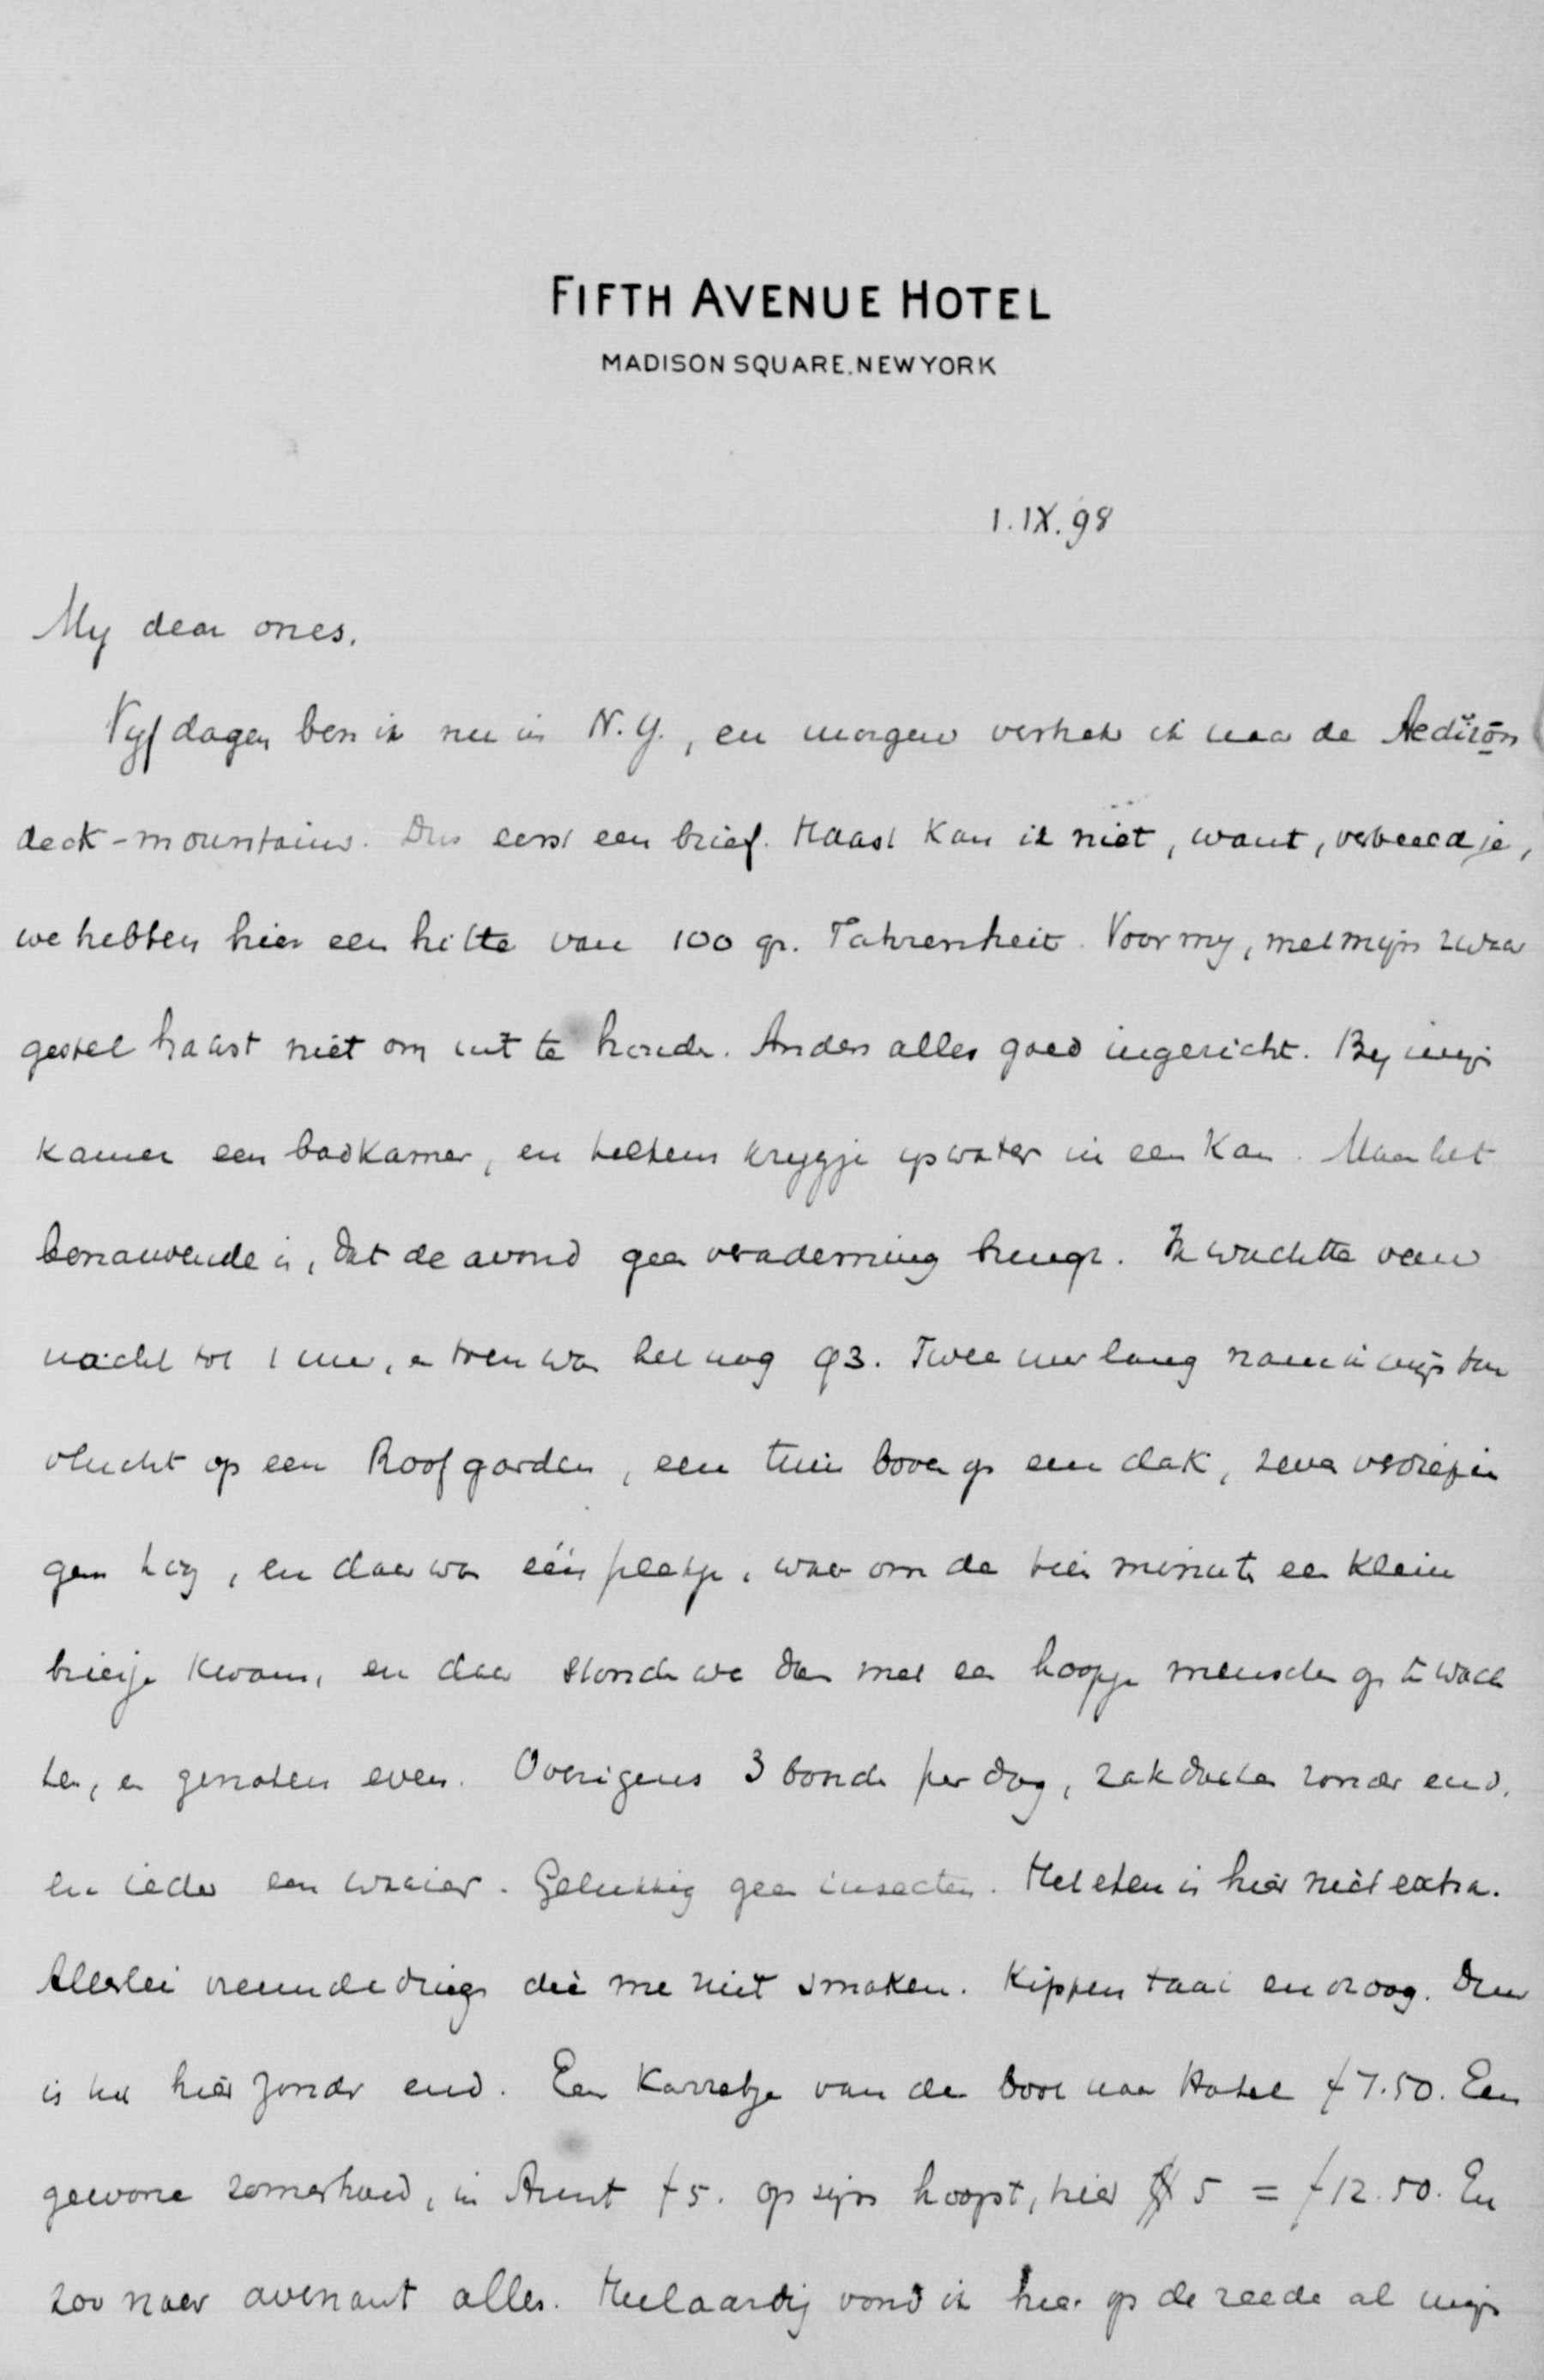 FIFTH AVENUE HOTEL
MADISON SQUARE. NEW YORK
1.IX.98
My dear ones.
Vyf dagen ben ik nu in N.Y., en morgen vertrek ik naar de Aediron
deck-mountains. Dus eerst een brief. Haast kan ik niet, want, verbeeld je,
we hebben hier een hitte van 100 gr. Fahrenheit. Voor my, met mijn zwaar
gestel haast niet om uit te houden. Anders alles goed ingericht. By mijn
kamer een badkamer, en telkens krygje yswater in een kan. Maar het
benauwende is, dat de avond geen verademing brengt. Ik wachtte van
nacht tot 1 uur, en toen was het nog 93. Twee uur lang nam ik mijn toe
vlucht op een Roofgarden, een tuin boven op een dak, zeven verdiepin
gen hoog, en daar was één plekje, waar om de tien minuten een klein
briesje kwam, en daar stonden we dan met een hoopje menschen op te wach
ten, en genoten even. Overigens 3 boorden per dag, zakdoeken zonder end,
en ieder een waaier. Gelukkig geen insecten. Het eten is hier niet extra.
Allerlei vreemde dingen die me niet smaken. Kippen taai en droog. Duur
is het hier zonder end. Een karretje van de boot naar Hotel f 7.50. Een
gewone zomerhoed, in Amst f 5. op zijn hoogst, hier $ 5 = f 12.50. En
zoo naar avenant alles. Heel aardig vond ik hier op de reede al mijn